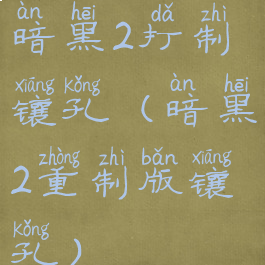 àn hēi dǎ zhì
暗黑2打制
xiāng kǒng àn hēi
镶孔(暗黑
zhòng zhì bǎn xiāng
2重制版镶
kǒng
孔)